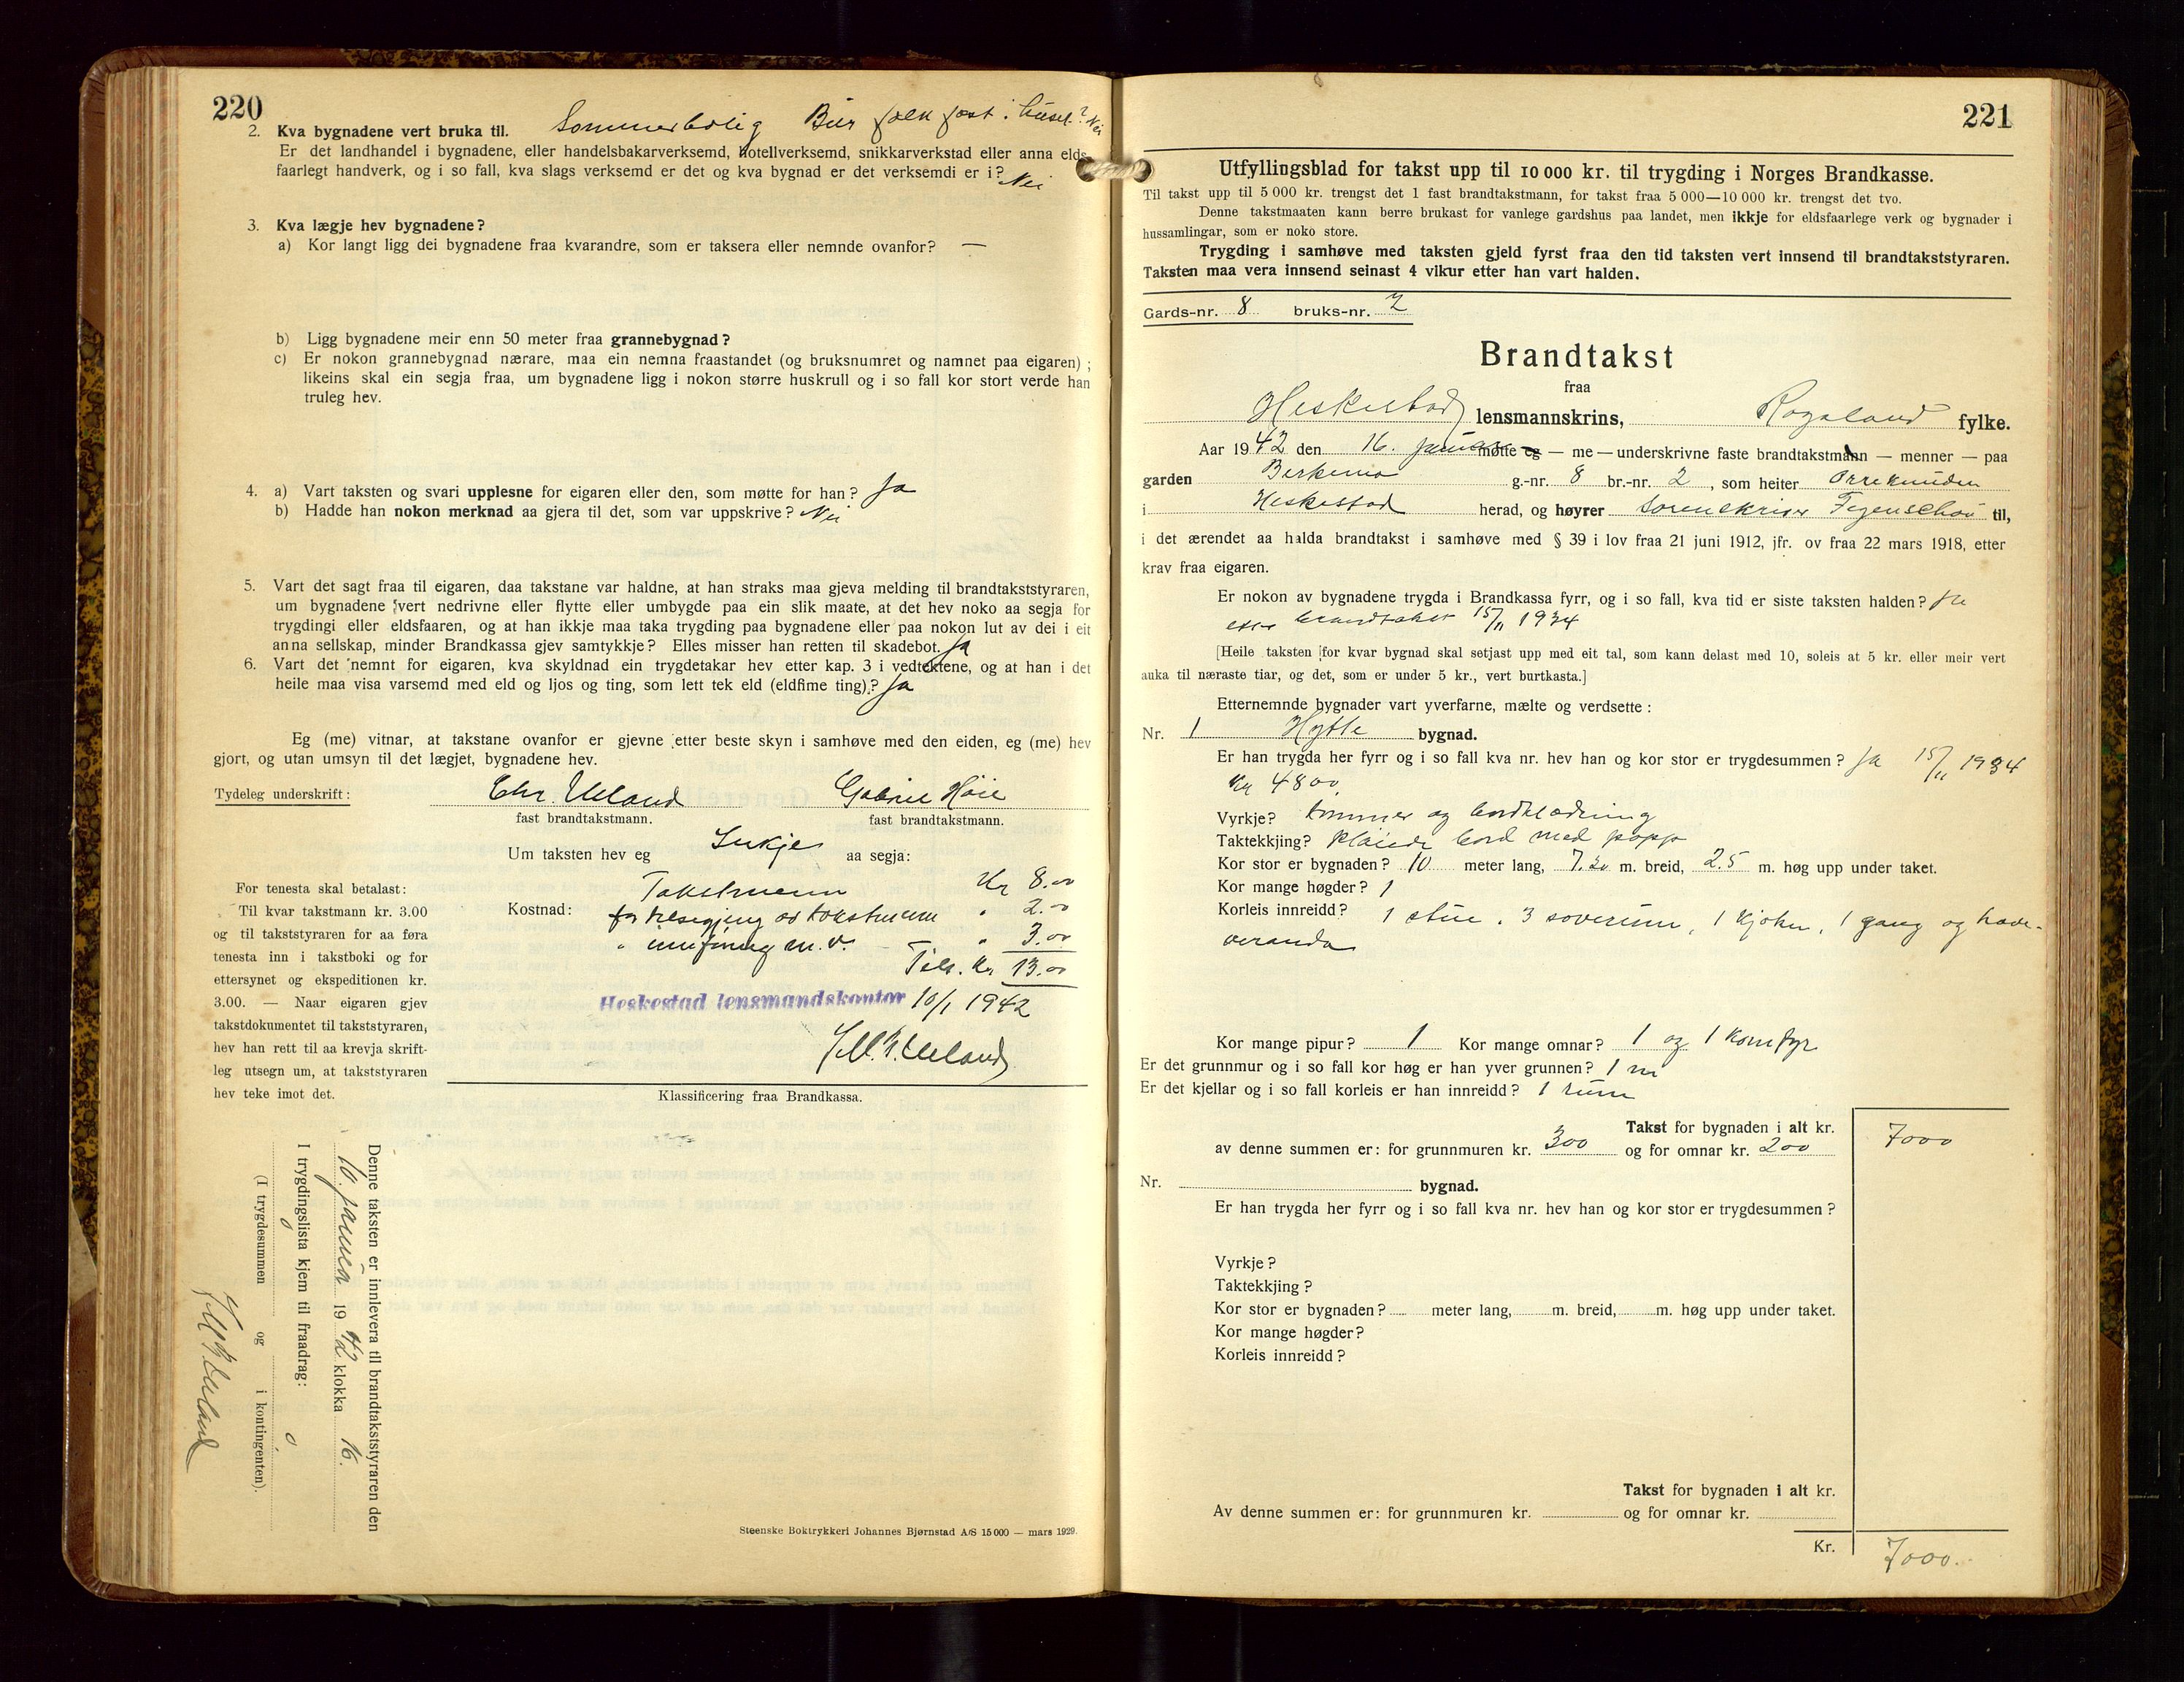 220
2. Kva bygnadene vert bruka til. Sommerbolig Bur folk fast i huset? Nei
Er det landhandel i bygnadene, eller handelsbakarverksemd, hotellverksemd, snikkarverkstad eller anna elds-
faarlegt handverk, og i so fall, kva slags verksemd er det og kva bygnad er det verksemdi er i? Nei
3. Kva lægje hev bygnadene?
a) Kor langt ligg dei bygnadene fraa kvarandre, som er taksera eller nemnde ovanfor? —
b) Ligg bygnadene meir enn 50 meter fraa grannebygnad?
c) Er nokon grannebygnad nærare, maa ein nemna fraastandet (og bruksnumret og namnet paa eigaren) ;
likeins skal ein segja fraa, um bygnadene ligg i nokon større huskrull og i so fall kor stort verde han
truleg hev.
4. a) Vart taksten og svari upplesne for eigaren eller den, som møtte for han? Ja
b) Hadde han nokon merknad aa gjera til det, som var uppskrive? Nei
5. Vart det sagt fraa til eigaren, daa takstane var haldne, at han straks maa gjeva melding til brandtakststyraren,
um bygnadene vert nedrivne eller flytte eller umbygde paa ein slik maate, at det hev noko aa segja for
trygdingi eller eldsfaaren, og at han ikkje maa taka trygding paa bygnadene eller paa nokon lut av dei i eit
anna sellskap, minder Brandkassa gjev samtykkje? Elles misser han retten til skadebot. Ja
6. Vart det nemnt for eigaren, kva skyldnad ein trygdetakar hev etter kap. 3 i vedtektene, og at han i det
heile maa visa varsemd med eld og ljos og ting, som lett tek eld (eldfime ting)? Ja
Eg (me) vitnar, at takstane ovanfor er gjevne etter beste skyn i samhøve med den eiden, eg (me) hev
gjort, og utan umsyn til det lægjet, bygnadene hev.
Tydeleg underskrift: Chr. Ueland Gabriel Høie
fast brandtakstmann. fast brandtakstmann.
Um taksten hev eg Inkje aa segja:
Kostnad: Takstmenn Kr 8.00
for tilsegjing av takstmenn " 2.00
" innføring m. v. — " 3.00
Tils. Kr 13.00
Heskestad lensmandskontor 16/1 1942
M. K. Ueland
Klassificering fraa Brandkassa.
For tenesta skal betalast:
Til kvar takstmann kr. 3.00
og til takststyraren for aa føra
tenesta inn i takstboki og for
ettersynet og ekspeditionen kr.
3.00. — Naar eigaren gjev
takstdokumentet til takststyraren,
hev han rett til aa krevja skrift-
leg utsegn um, at takststyraren
hev teke imot det.
Denne taksten er innlevera til brandtakststyraren den
16. januar 1942 klokka 16.
I trygdingslista kjem til fraadrag:
0 0
(I trygdesummen og i kontingenten).
M. K. Ueland
Steenske Boktrykkeri Johannes Bjørnstad A/S 15 000 — mars 1929.
221
Utfyllingsblad for takst upp til 10 000 kr. til trygding i Norges Brandkasse.
Til takst upp til 5 000 kr. trengst det 1 fast brandtakstmann, for takst fraa 5 000—10 000 kr. trengst det tvo.
Denne takstmaaten kann berre brukast for vanlege gardshus paa landet, men ikkje for eldsfaarlege verk og bygnader i
hussamlingar, som er noko store.
Trygding i samhøve med taksten gjeld fyrst fraa den tid taksten vert innsend til brandtakststyraren.
Taksten maa vera innsend seinast 4 vikur etter han vart halden.
Gards-nr. 8 bruks-nr. 2
Brandtakst
fraa
Heskestad lensmannskrins, Rogaland fylke.
Aar 1942 den 16. januar møtte eg — me — underskrivne faste brandtakstmann — menner — paa
garden Berkemo g.-nr. 8 br.-nr. 2, som heiter Orreknuden
i Heskestad herad, og høyrer Sorenskriver Fegenschou til,
i det ærendet aa halda brandtakst i samhøve med § 39 i lov fraa 21 juni 1912, jfr. ov fraa 22 mars 1918, etter
krav fraa eigaren.
Er nokon av bygnadene trygda i Brandkassa fyrr, og i so fall, kva tid er siste taksten halden? Ja
brandtakst 15/11 1934
[Heile taksten for kvar bygnad skal setjast upp med eit tal, som kann delast med 10, soleis at 5 kr. eller meir vert
auka til næraste tiar, og det, som er under 5 kr., vert burtkasta.]
Etternemnde bygnader vart yverfarne, mælte og verdsette :
Nr. 1 Hytte bygnad.
Er han trygda her fyrr og i so fall kva nr. hev han og kor stor er trygdesummen? Ja 15/11 1934
Kr 4800.
Vyrkje? tømmer og bordklædning
Taktekkjing? pløiede bord med papp
Kor stor er bygnaden? 10 meter lang, 7.20 m. breid, 2.5 m. høg upp under taket.
Kor mange høgder? 1
Korleis innreidd? 1 stue, 3 soverum, 1 kjøken, 1 gang og have-
veranda
Kor mange pipur? 1 Kor mange omnar? 1 og 1 komfyr
Er det grunnmur og i so fall kor høg er han yver grunnen? 1 m
Er det kjellar og i so fall korleis er han innreidd? 1 rum
Takst for bygnaden i alt kr. 7000
av denne summen er: for grunnmuren kr. 300 og for omnar kr. 200
Nr. bygnad.
Er han trygda her fyrr og i so fall kva nr. hev han og kor stor er trygdesummen?
Vyrkje?
Taktekkjing?
Kor stor er bygnaden? meter lang, m. breid, m. høg upp under taket.
Kor mange høgder?
Korleis innreidd?
Takst for bygnaden i alt kr.
Av denne summen er: for grunnmuren kr. og for omnar kr.
Kr. 7000.